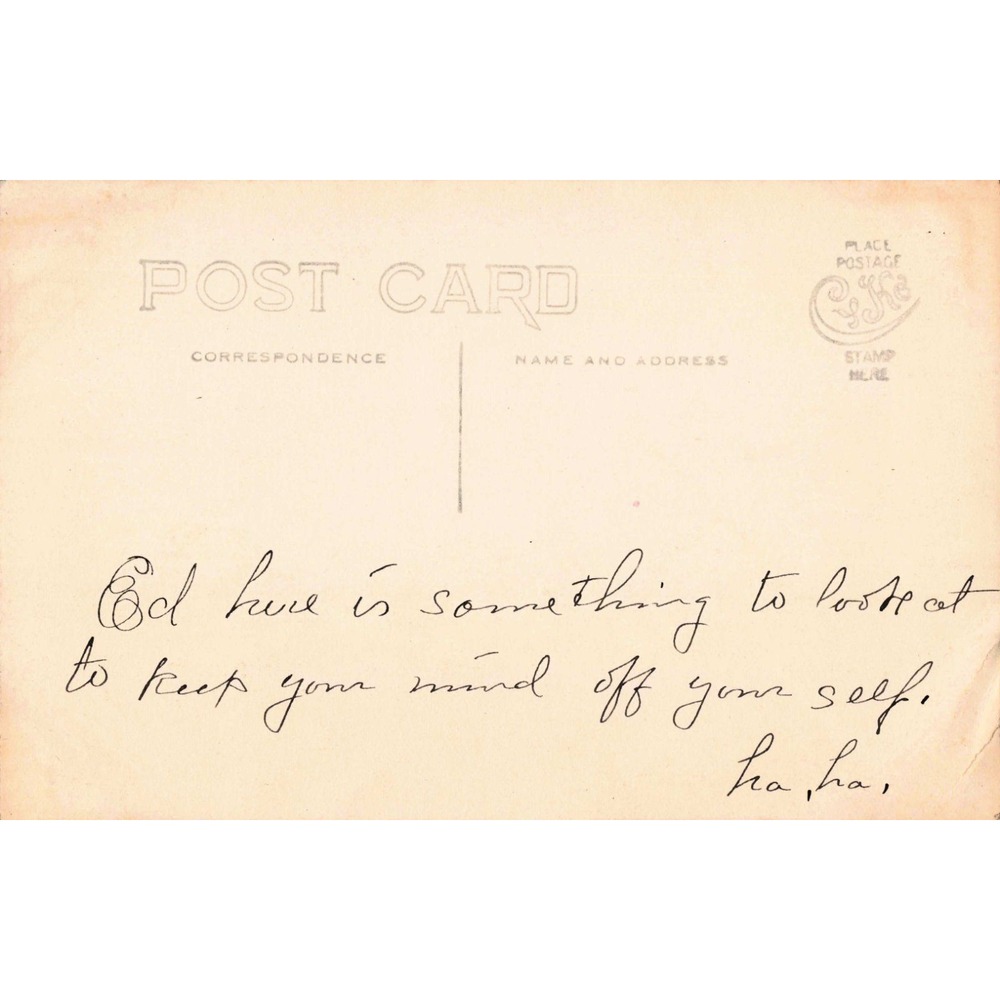 POST CARD
CORRESPONDENCE
NAME AND ADDRESS
PLACE
POSTAGE
CyKo
STAMP
HERE
Ed here is something to look at
to keep your mind off your self.
ha, ha.